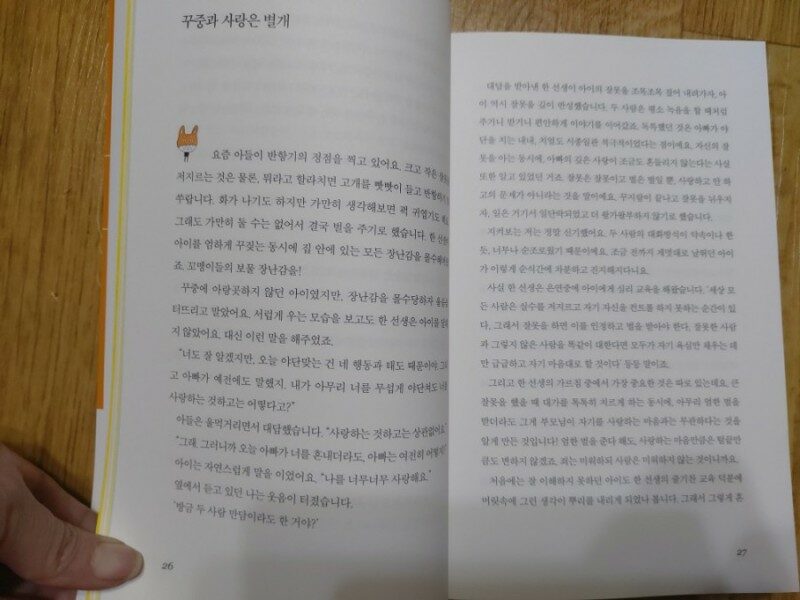 꾸중과 사랑은 별개
요즘 아들이 반항기의 정점을 찍고 있어요. 크고 작은
저지르는 것은 물론, 뭐라고 할라치면 고개를 빳빳이 들고
쑤랍니다. 화가 나기도 하지만 가만히 생각해보면 퍽 귀엽기도
그래도 가만히 둘 수는 없어서 결국 벌을 주기로 했습니다. 한
아이를 엄하게 꾸짖는 동시에 집 안에 있는 모든 장난감을
죠. 꼬맹이들의 보물 장난감을!
꾸중에 아랑곳하지 않던 아이였지만, 장난감을 몰수당하자
터뜨리고 말았어요. 서럽게 우는 모습을 보고도 한 선생은 아이를
지 않았어요. 대신 이런 말을 해주었죠.
“너도 잘 알겠지만, 오늘 야단맞는 건 네 행동과 태도 때문이야.
고 아빠가 예전에도 말했지. 내가 아무리 너를 무섭게 야단쳐도
사랑하는 것하고는 어떻다고?”
아들은 울먹거리면서 대답했습니다. “사랑하는 것하고는 상관없어요.”
“그래. 그러니까 오늘 아빠가 너를 혼내더라도, 아빠는 여전히 어떻지?”
아이는 자연스럽게 말을 이었어요. “나를 너무너무 사랑해요.”
옆에서 듣고 있던 나는 웃음이 터졌습니다.
‘방금 두 사람 만담이라도 한 거야?’
26
대답을 받아낸 한 선생이 아이의 잘못을 조목조목 짚어 내려가자, 아
이 역시 잘못을 깊이 반성했습니다. 두 사람은 평소 농을 할 때처럼
주거니 받거니 편안하게 이야기를 이어갔죠. 독특했던 것은 아빠가 야
단을 치는 내내, 처벌도 시종일관 적극적이었다는 점이에요. 자신의 잘
못을 아는 동시에, 아빠의 깊은 사랑이 조금도 흔들리지 않는다는 사실
또한 알고 있었던 거죠. 잘못은 잘못이고 벌은 벌일 뿐, 사랑하고 안 하
고의 문제가 아니라는 것을 말이에요. 꾸지람이 끝나고 잘못을 뉘우치
자, 일은 거기서 일단락되었고 더 왈가왈부하지 않기로 했습니다.
지켜보는 저는 정말 신기했어요. 두 사람의 대화방식이 약속이나 한
듯, 너무나 순조로웠기 때문이에요. 조금 전까지 제멋대로 날뛰던 아이
가 이렇게 순식간에 차분하고 진지해지다니요.
사실 한 선생은 은연중에 아이에게 심리 교육을 해왔습니다. ‘세상 모
든 사람은 실수를 저지르고 자기 자신을 컨트롤 하지 못하는 순간이 있
다, 그래서 잘못을 하면 이를 인정하고 벌을 받아야 한다. 잘못한 사람
과 그렇지 않은 사람을 똑같이 대한다면 모두가 자기 욕심만 채우는 데
만 급급하고 자기 마음대로 할 것이다’ 등등 말이죠.
그리고 한 선생의 가르침 중에서 가장 중요한 것은 따로 있는데요. 큰
잘못을 했을 때 대가를 톡톡히 치르게 하는 동시에, 아무리 엄한 벌을
받더라도 그게 부모님이 자기를 사랑하는 마음과는 무관하다는 것을
알게 만든 것입니다! 엄한 벌을 준다 해도, 사랑하는 마음만큼은 털끝만
큼도 변하지 않겠죠. 죄는 미워하되 사람은 미워하지 않는 것이니까요.
처음에는 잘 이해하지 못하던 아이도 한 선생의 끈기찬 교육 덕분에
머릿속에 그런 생각이 뿌리를 내리게 되었나 봅니다. 그래서 그렇게 혼
27